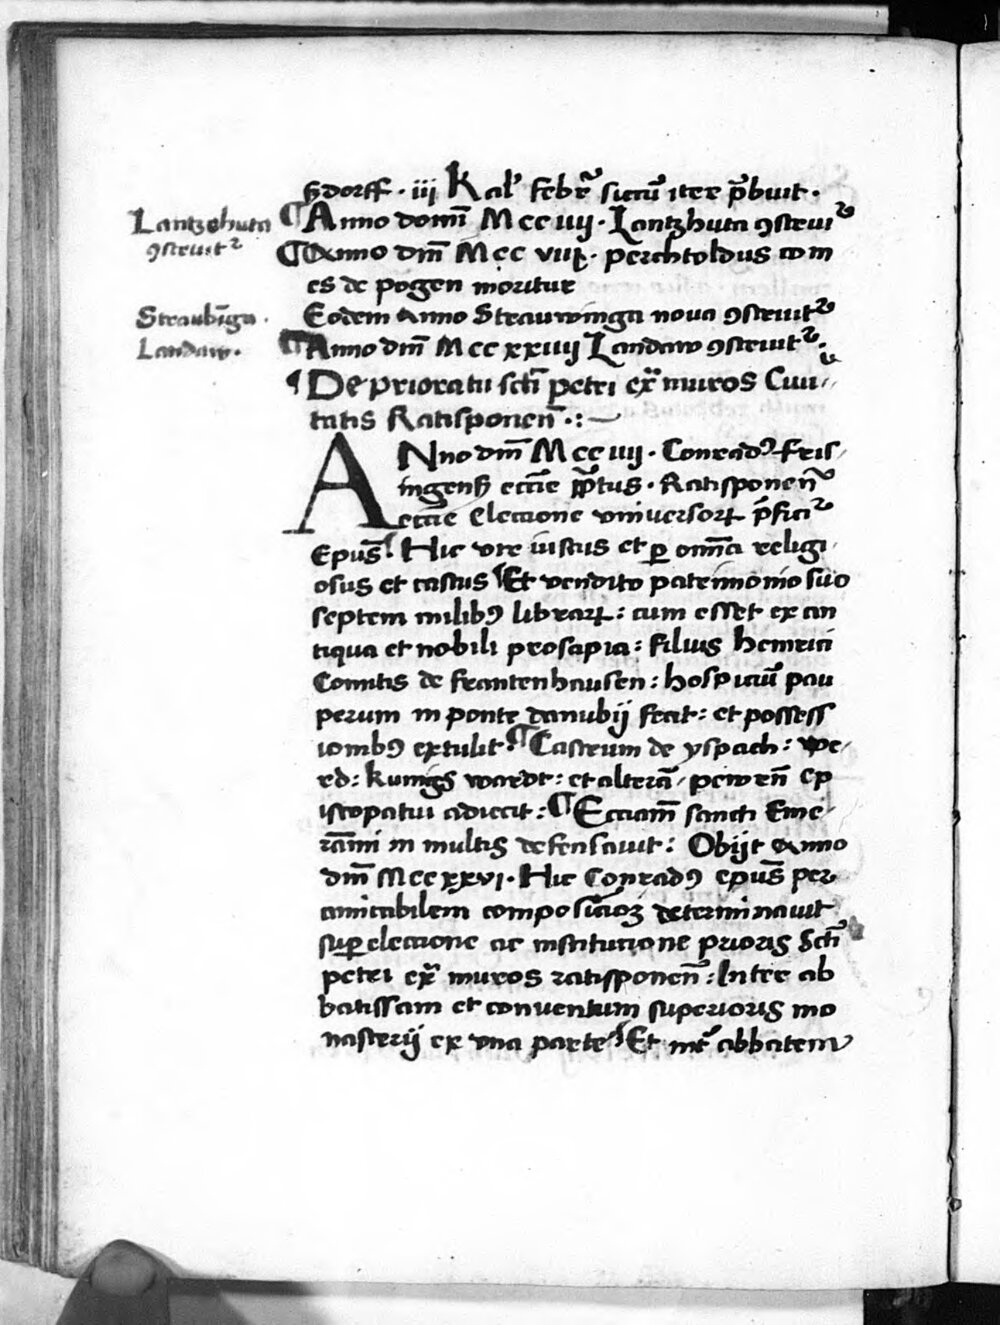 ẞdorff · iij Kal' febr̄ sicut̄ iter p̄buit ·
Lantzehuta ꝯstruit᷑
¶ Anno dom̄ Mcciiij · Lantzhuta ꝯstrui᷑
¶ Anno dm̄ Mcc viij · perchtoldus com
es de pogen moritur
Straubīga ·
Eodem Anno Strauwinga nova ꝯstruit᷑
Landaw ·
¶ Anno dm̄ Mccxxiiij Landaw ꝯstruit᷑ ·
¶ De prioratu sct̄i petri ex̄ muros Ciui
tatis Ratisponen̄ ·:~
ANno dm̄ Mcciiij · Conradꝰ fris
ingensß eccl̄ie p̄p̄tus · Ratisponen̄
eccl̄ie electione vniuersorꝝ p̄fici᷑
Epūs ¶ Hic vir iustus et ꝑ om̄ia religi
osus et castus ¶ Et vendito patrimonio suo
septem milibꝰ librarꝝ : cum esset ex an
tiqua et nobili prosapia : filius henrici
Comitis de frantenhausen : hospiciū pau
perum in ponte danubij fecit : et possess
ionibꝰ extulit ¶ Castrum de yspach : we
rd : kunigs wardt : et alterā pewen̄ Ep
iscopatui adiecit : ¶ Ecciam̄ sancti Eme
rām̄i in multis defensauit : Obijt Anno
dm̄ Mccxxvi · Hic Conradꝰ epūs per
amicabilem composic̄ioꝫ determinauit
suꝑ electione ac institutione prioris Sct̄i
petri ex̄ muros ratisponen̄ : Inter ab
batissam et conuentum superioris mo
nasterij ex vna parte ¶ Et int̄ abbatem